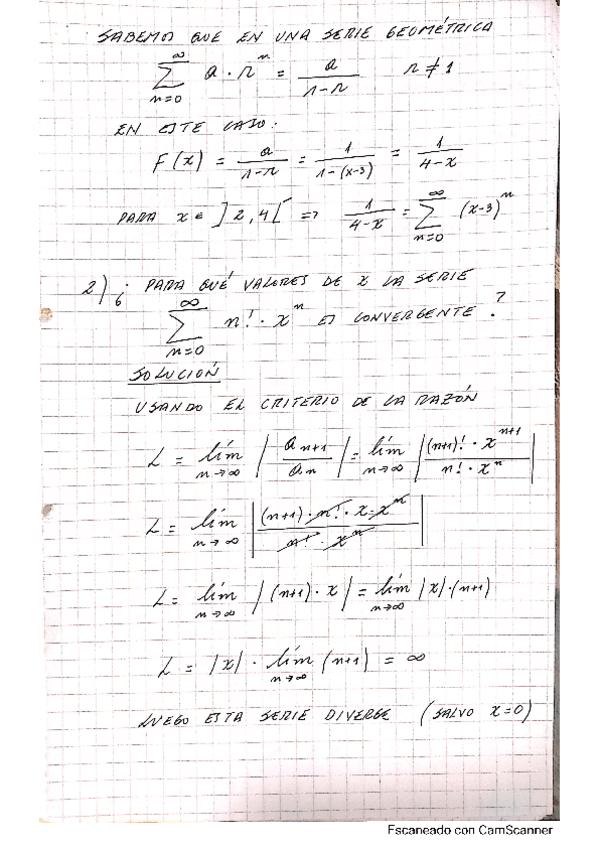 SABEMOS QUE EN UNA SERIE GEOMÉTRICA
∞
∑ a · r^n = a/(1-r)   r ≠ 1
n=0
EN ESTE CASO:
F(x) = a/(1-r) = 1/(1-(x-3)) = 1/(4-x)
PARA x ∈ ]2,4[ => 1/(4-x) = ∑_{n=0}^{∞} (x-3)^n
2) ¿ PARA QUÉ VALORES DE x LA SERIE
∞
∑ n! · x^n ES CONVERGENTE ?
n=0
SOLUCIÓN
USANDO EL CRITERIO DE LA RAZÓN
L = lím_{n→∞} | a_{n+1}/a_n | = lím_{n→∞} | (n+1)! · x^{n+1} / n! · x^n |
L = lím_{n→∞} | (n+1) · n! · x · x^n / n! · x^n |
L = lím_{n→∞} | (n+1) · x | = lím_{n→∞} |x| · (n+1)
L = |x| · lím_{n→∞} (n+1) = ∞
LUEGO ESTA SERIE DIVERGE (SALVO x=0)
Escaneado con CamScanner